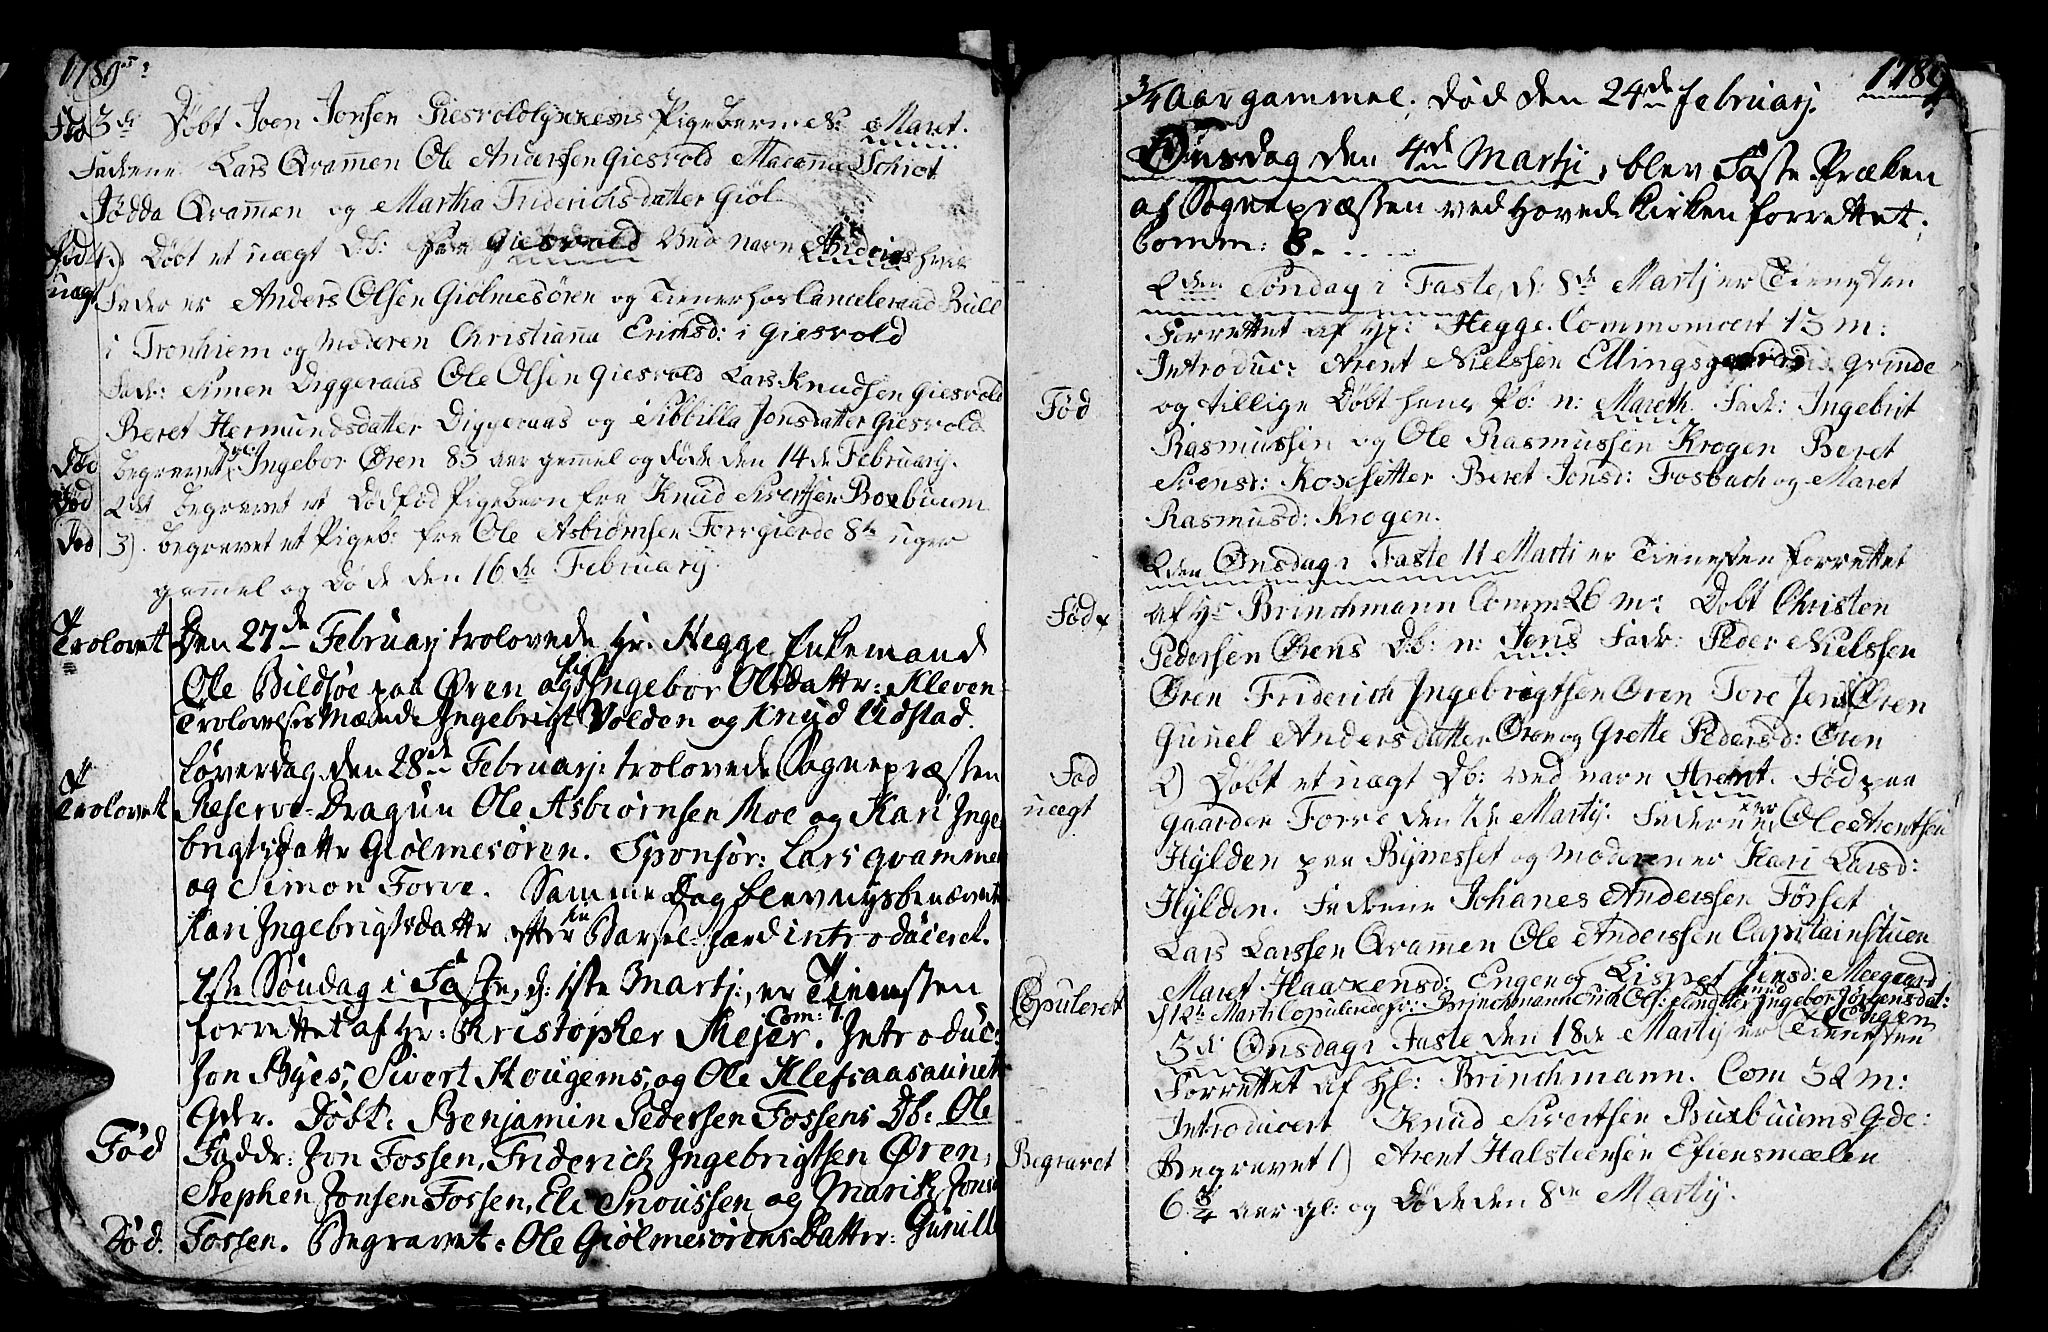 1789
Fød 3de Døbt Joen Jonsen Giesvold Pigebarn N: Maret.
Fadderne Lars Qvammen Ole Andersen Giesvold Madame Schiøt
Jødda Qvammen og Martha Friderichsdatter Giøl
Fød uægt 4.) Døbt et uægt Db: fra Giesvold ved navn Andreas hvis
Fader er Anders Olsen Giølmesøren og Tiener hos Cancelleraad Bull
i Tronhiem og Moderen Christianna Erichsd: i Giesvold
Fadr: Simen Diggeraas Ole Olsen Giesvold Lars Knudsen Giesvold
Beret Hermundsdatter Diggeraas og Sibbilla Jonsdatter Giesvold
Død begravet Ingebor Øren 83 aar gamel og døde den 14de Februarij.
Død 2det begravet et Dødfød Pigebarn fra Knud Sivertsen Boxbuum
Død 3). begravet et Pigeb: fra Ole Asbiørnsen Forrgierde 8te uger
gamel og Døde den 16de Februarij.
Trolovet Den 27de Februarj trolovede Hr. Hegge Enkemand
Ole Bildsøe paa Øren og Ingebor Olsdattr: Kleven
Trolovelses Mænd Ingebrigt Volden og Knud Udstad.
Trolovet Løverdag den 28de Februarj: trolovede Sognepræsten
Reserve-Dragun Ole Asbiørnsen Moe og Kari Inge
brigtsdattr Giølmesøren. Sponsor: Lars Qvammen
og Simon Forve. Samme Dag blev nysbenævnte
Kari Ingebrigtsdattr efter Barsel-færd introduceret.
1ste Søndag i Faste, d: 1ste Martj:, er Tienesten
forrettet af Hr: Kristopher Mejer. Com: 1. Introduc:
Jon Byes, Sivert Hougems, og Ole Klefsaasaunets
Qdr. Døbt: Benjamin Pedersen Fossens Db: Ole
Fød Faddr: Jon Fossen, Friderich Ingebrigtsen Øren,
Stephen Jonsen Fossen, Eli Snoussen og Marith Jons
Død. Fossen. Begravet: Ole Giølmesørens Datter: Gunill
1789
3/4 Aar gammel. død den 24de Februarj.
Onsdag den 4de Martji, blev Faste-Præken
af Sognepræsten ved Hovedkirken forrettet;
Comm: 8.
2den Søndag i Faste, d: 8de Martj er Tienesten
Forrettet af Hr: Hegge. Communicert 13 m:
Introduc: Arent Nielssen Ellingsgaards Qvinde
Fød og tillige Døbt hans Pb: n: Mareth. Fadr: Ingebrit
Rasmussen og Ole Rasmussen Krogen Beret
Svensd: Koxsetter Beret Jonsd: Fosbach og Maret
Rasmusd: Krogen.
2den Onsdag i Faste 11 Marti er Tienesten forrettet
Fød af Hr Brinchmann Comm: 26 m: Døbt Christen
Pedersen Ørens Db: n: Jens Fadr: Peder Nielssen
Øren Friderich Ingebrigtsen Øren Tore Jens Øren
Gunnel Andersdatter Øren og Grette Pedersd: Øren
Fød uægt 2) Døbt et uægt Db: ved navn Arent. Fød paa
gaarden Forre den Martij: Faderen er Ole Arentsen
Hylden paa Bynesset og moderen er Kari Larsd:
Hylden. Fadderne Johanes Anderssen Førset
Lars Larssen Qvammen Ole Anderssen Capitainstuen
Maret Haaxensd: Engen og Lispet Jensd: Meegaard
Copuleret d 12te Marti Copulerede Hr: Brinchmann Erik Olss: og Ingebor Jørgensdat: Engen
3de Onsdag i Faste den 18de Martij er Tienesten
Forrettet af Hr: Brinchmann. Com 32 m:
Introducert Knud Sivertsen Buxbuums Qde:
Begravet Begravet 1) Arent Halsteensen Efiensmælen
6 3/4 aar gl: og Døde den 8de Martij.